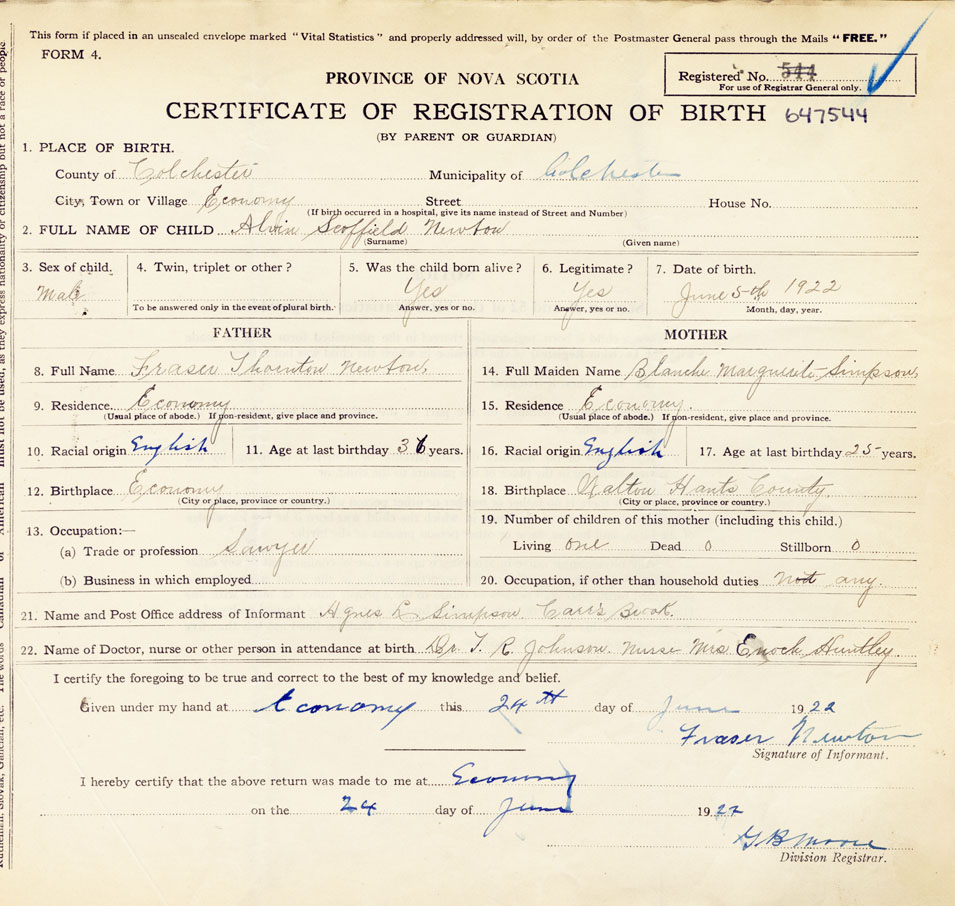 This form if placed in an unsealed envelope marked "Vital Statistics" and properly addressed will, by order of the Postmaster General pass through the Mails "FREE."
FORM 4.
PROVINCE OF NOVA SCOTIA
Registered No. 544
For use of Registrar General only.
CERTIFICATE OF REGISTRATION OF BIRTH 647544
(BY PARENT OR GUARDIAN)
1. PLACE OF BIRTH.
County of Colchester Municipality of Colchester
City, Town or Village Economy Street House No.
(If birth occurred in a hospital, give its name instead of Street and Number)
2. FULL NAME OF CHILD Alvin Scoffield Newton
(Surname) (Given name)
3. Sex of child. 4. Twin, triplet or other? 5. Was the child born alive? 6. Legitimate? 7. Date of birth.
Male Yes Yes June 5th 1922
To be answered only in the event of plural birth. Answer, yes or no. Answer, yes or no. Month, day, year.
FATHER MOTHER
8. Full Name Fraser Thornton Newton. 14. Full Maiden Name Blanche Marguerite Simpson.
9. Residence. Economy 15. Residence Economy.
(Usual place of abode.) If non-resident, give place and province. (Usual place of abode.) If non-resident, give place and province.
10. Racial origin English 11. Age at last birthday 36 years. 16. Racial origin English 17. Age at last birthday 25 years.
12. Birthplace Economy 18. Birthplace Walton Hants County
(City or place, province or country.) (City or place, province or country.)
13. Occupation:— 19. Number of children of this mother (including this child.)
(a) Trade or profession Sawyer Living one Dead 0 Stillborn 0
(b) Business in which employed 20. Occupation, if other than household duties not any.
21. Name and Post Office address of Informant Agnes L Simpson Carr's Brook.
22. Name of Doctor, nurse or other person in attendance at birth Dr T. R. Johnson. Nurse Mrs Enoch Huntley.
I certify the foregoing to be true and correct to the best of my knowledge and belief.
Given under my hand at Economy this 24th day of June 1922
Fraser Newton
Signature of Informant.
I hereby certify that the above return was made to me at Economy
on the 24 day of June 1922
G B Moore
Division Registrar.